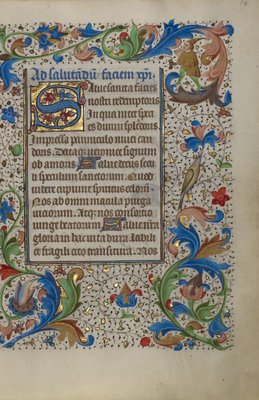 Ad salutadū faciem xpī.
Salue sancta facies
nostri redemptoris
In qua nitet speci
es diuini splēdoris
Impressa panniculo niuei can
doris. Dataq ueronice signum
ob amoris Salue decus secu
li speculum sanctorum Quod
uidere cupiunt spiritus celorū
Nos ab omni macula purga
uiciorum Atq nos consortio
iunge beatorum Salue nr̄a
gloria in hac uita dura labili
et fragili cito transitura. Nos